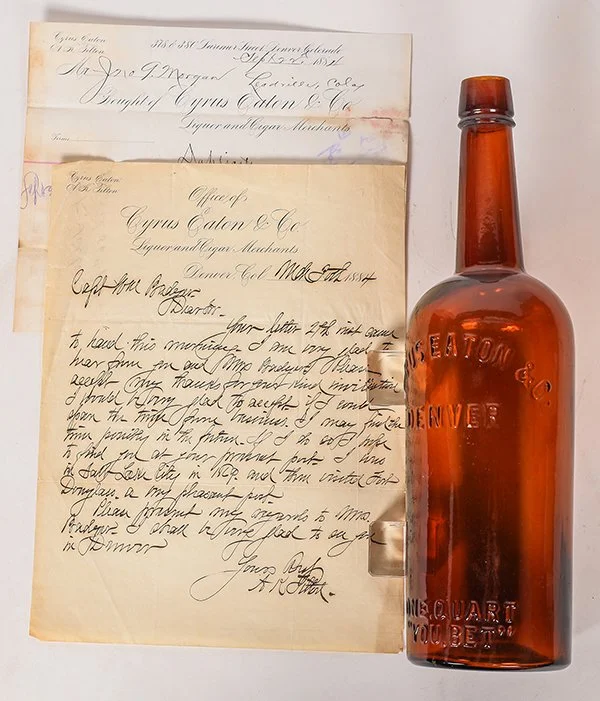 Cyrus Eaton
A. K. Tilton
378 & 380 Larimer Street, Denver, Colorado
Sept 22 1884
Mr Jno G Morgan
Leadville, Colo
Bought of Cyrus Eaton & Co.
Liquor and Cigar Merchants.
Terms
Duplicate
Cyrus Eaton
A. K. Tilton
Office of
Cyrus Eaton & Co
Liquor and Cigar Merchants.
Denver, Col. Mch 8th 1884
Capt Wm Badger
Dear Sir.
Your letter 4th inst came
to hand this morning. I am very glad to
hear from you and Mrs Badger. Please
accept my thanks for your kind invitation
I should be very glad to accept if I could
spare the time from business. I may find the
time possibly in the future. If I do so I hope
to find you at your present post. I was
in Salt Lake City in 1879. and then visited Fort
Douglas. a very pleasant post
Please present my regards to Mrs
Badger. I shall be very glad to see you
in Denver
Yours Resp
A K Tilton
US EATON & C
DENVER
ONE QUART
"YOU BET"